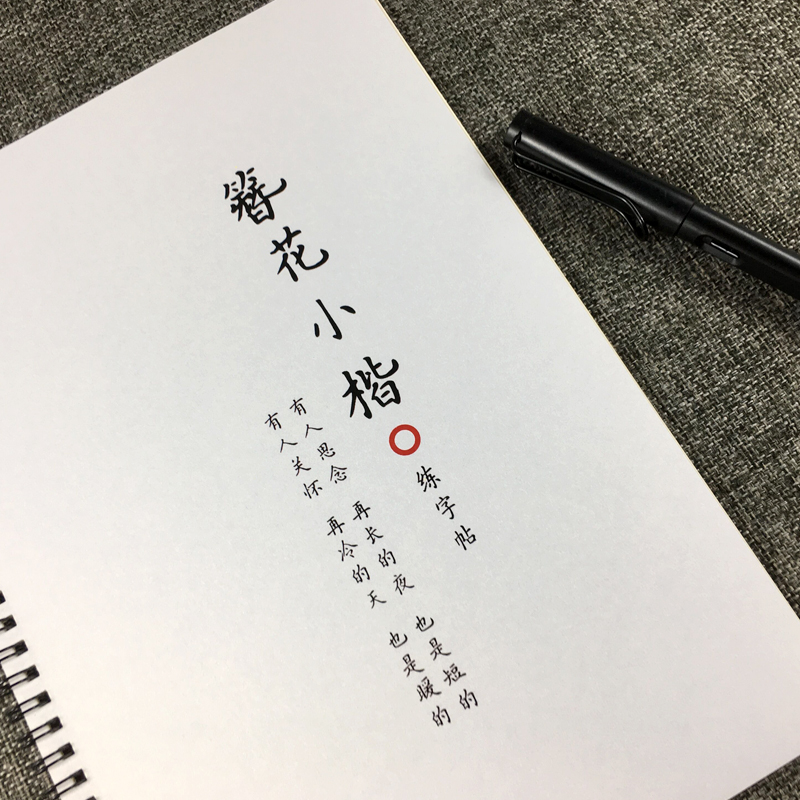 簪花小楷
练字帖
有人思念 再长的夜 也是短的
有人关怀 再冷的天 也是暖的